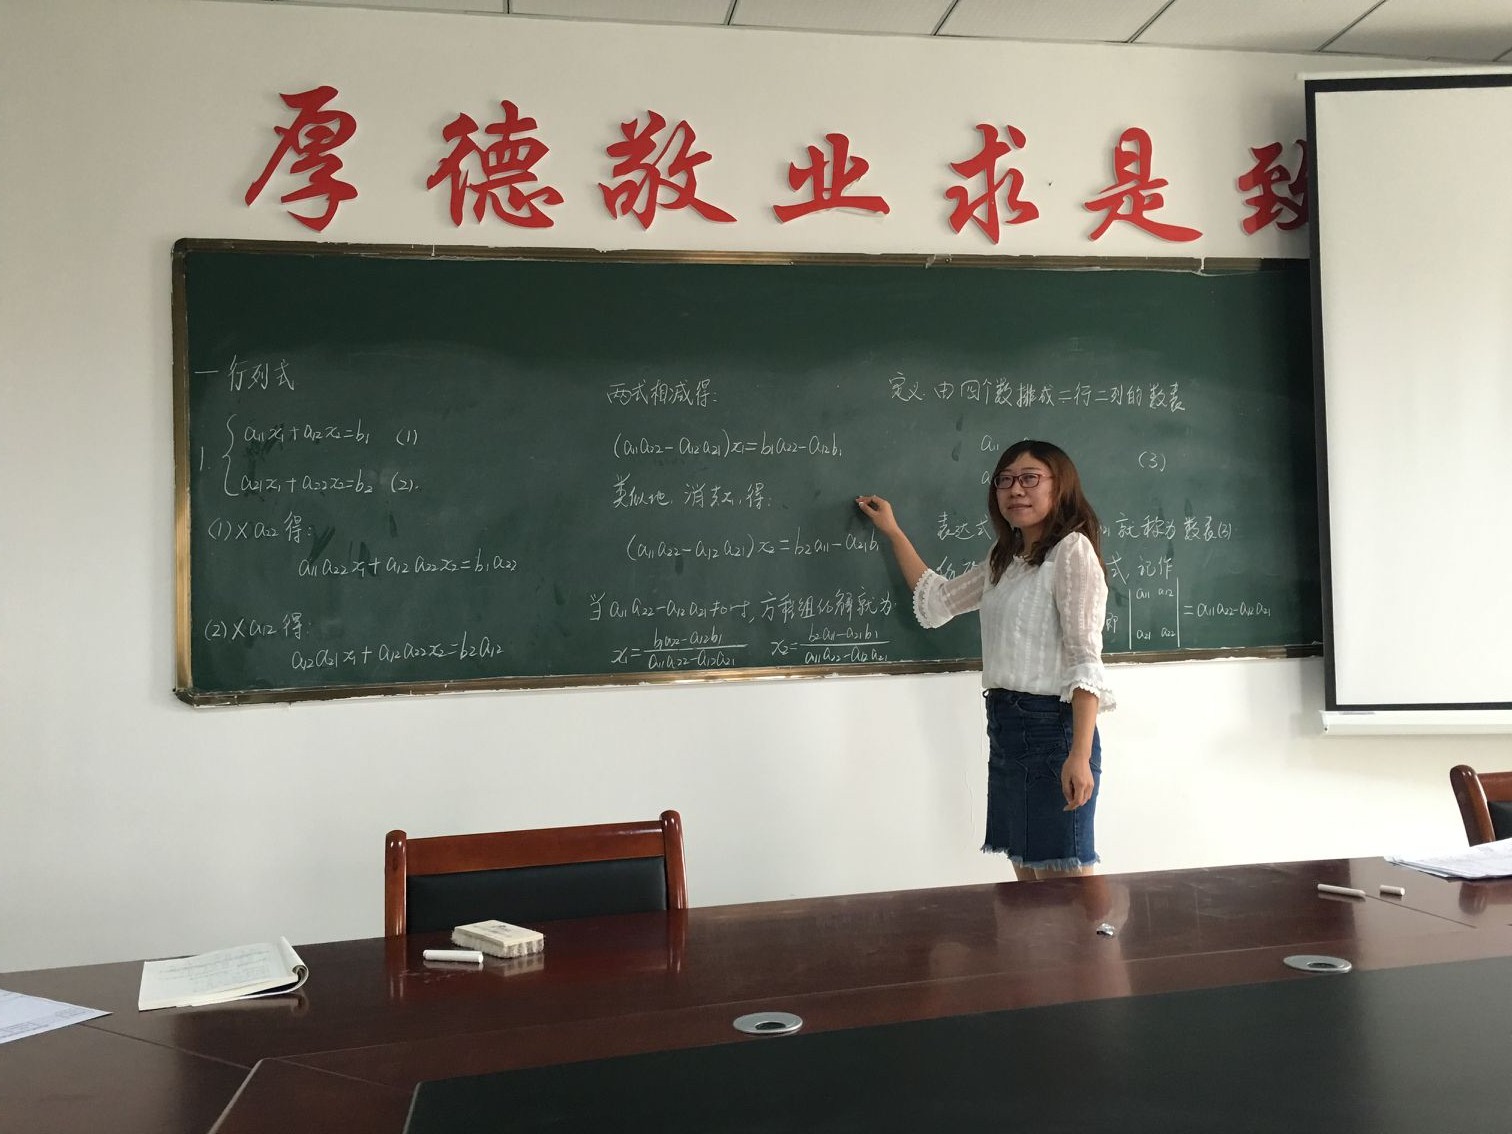 厚德敬业求是致
一 行列式
1. { a₁₁x₁+a₁₂x₂=b₁ (1)
a₂₁x₁+a₂₂x₂=b₂ (2).
(1)×a₂₂得:
a₁₁a₂₂x₁+a₁₂a₂₂x₂=b₁a₂₂
(2)×a₁₂得:
a₁₂a₂₁x₁+a₁₂a₂₂x₂=b₂a₁₂
两式相减得:
(a₁₁a₂₂-a₁₂a₂₁)x₁=b₁a₂₂-a₁₂b₂
类似地, 消去x₁, 得:
(a₁₁a₂₂-a₁₂a₂₁)x₂=b₂a₁₁-a₂₁b₁
当a₁₁a₂₂-a₁₂a₂₁≠0时, 方程组的解就为:
x₁=(b₁a₂₂-a₁₂b₂)/(a₁₁a₂₂-a₁₂a₂₁) x₂=(b₂a₁₁-a₂₁b₁)/(a₁₁a₂₂-a₁₂a₂₁)
定义 由四个数排成二行二列的数表
a₁₁
(3)
表达式 就称为数表(3)
式, 记作
即 |a₁₁ a₁₂
a₂₁ a₂₂| =a₁₁a₂₂-a₁₂a₂₁